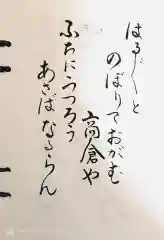 はる〴〵と
のぼりておがむ
高倉や
ふちにうつろう
あさばなるらん